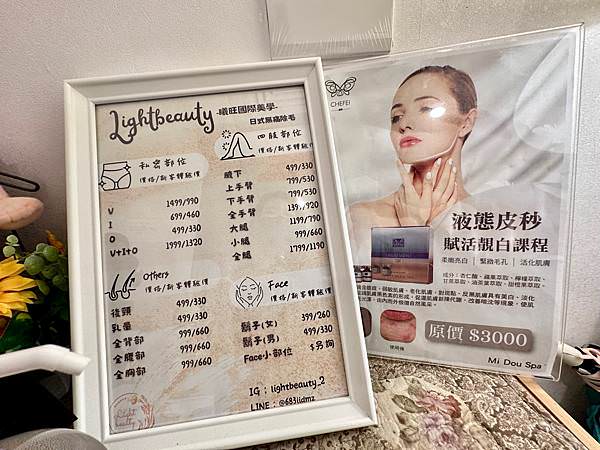 Lightbeauty
-曦旺國際美學-
日式無痛除毛
私密部位
價格/新客體驗價
V 1499/990
I 699/460
O 499/330
V+I+O 1999/1320
四肢部位
價格/新客體驗價
腋下 499/330
上手臂 799/530
下手臂 799/530
全手臂 1399/920
大腿 1199/790
小腿 999/660
全腿 1799/1190
Others
價格/新客體驗價
後頸 499/330
乳暈 499/330
全背部 999/660
全腹部 999/660
全胸部 999/660
Face
價格/新客體驗價
鬍子(女) 399/260
鬍子(男) 499/330
Face小部位 $另詢
IG：lightbeauty_2
LINE：@683jidmz
light beauty
CHEFEI
液態皮秒
賦活靚白課程
柔嫩亮白｜緊緻毛孔｜活化肌膚
成分：杏仁酸、蘋果萃取、檸檬萃取、
甘蔗萃取、油茶葉萃取、甜橙果萃取、
使用後
原價 $3000
Mi Dou Spa